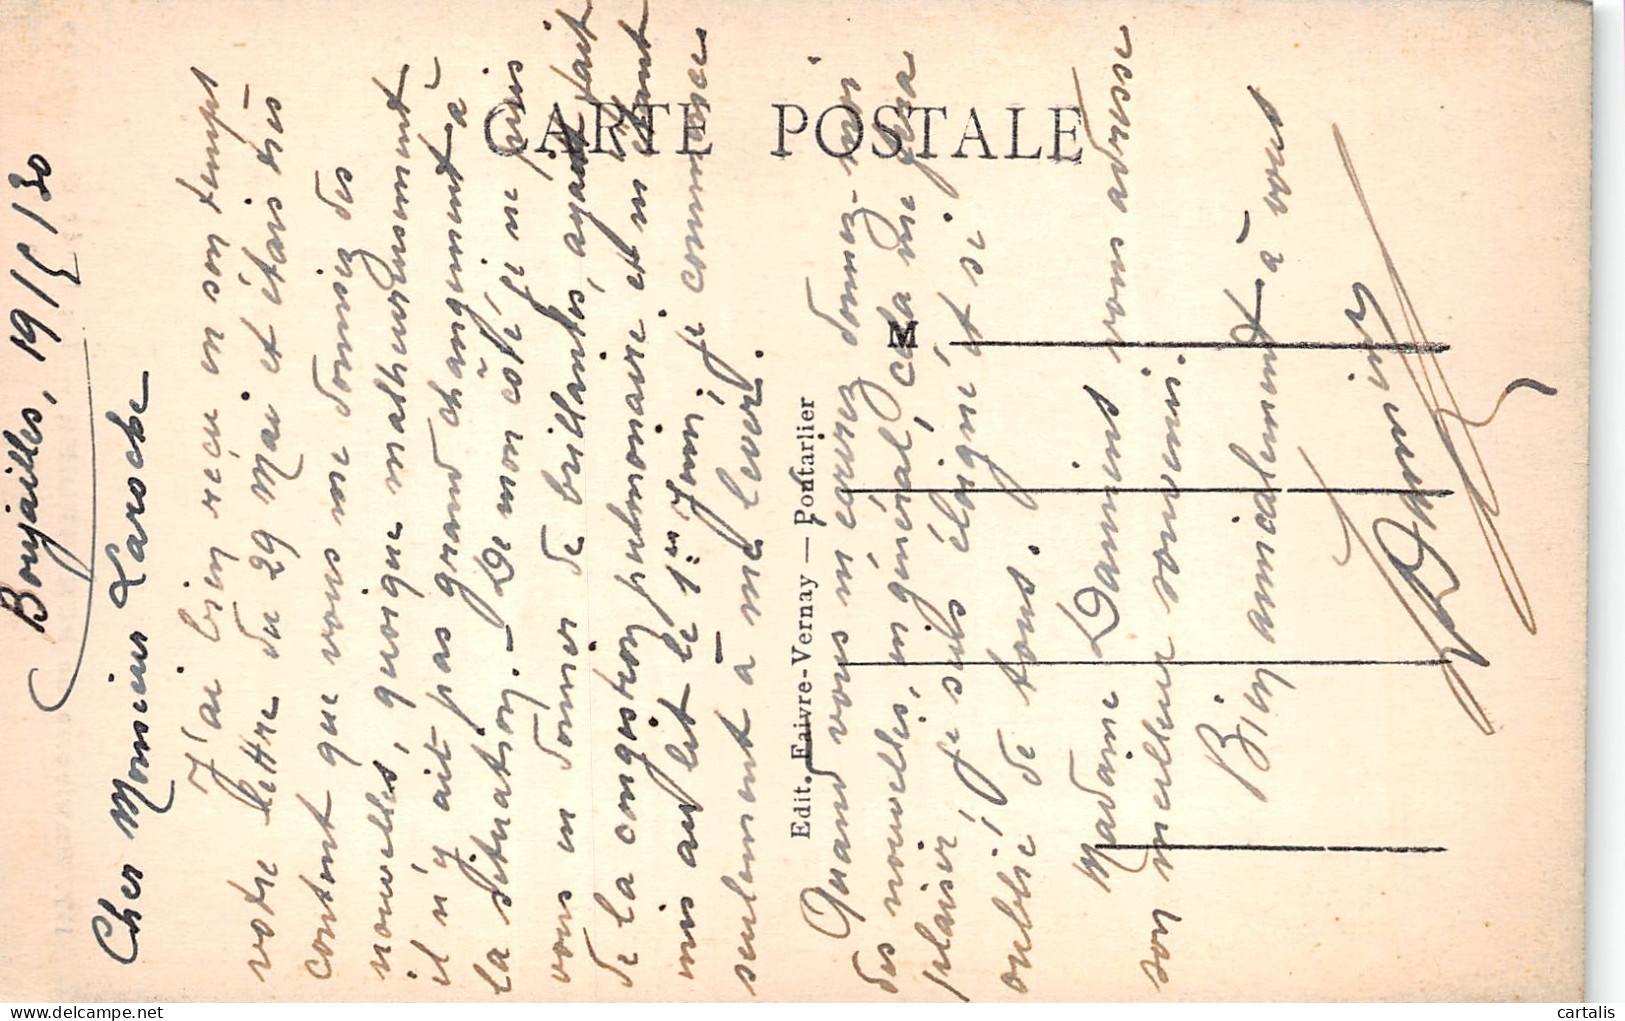 Boujailles, 19/6/30
Cher Monsieur Laroche
J'ai bien reçu en son temps
votre lettre du 29 Mai et étais très
content que vous me donniez des
nouvelles, quoique malheureusement
il n'y ait pas grand changement à
la situation. – De mon côté, je ne puis
vous en donner de brillantes, ayant fait
de la congestion pulmonaire et m'étant
mis au lit le 1er Juin, je commence
seulement à me lever.
Quand vous m'écrirez donnez-moi
des nouvelles, en général, cela me fera
plaisir, je suis éloigné et si
oublié de tous.
Madame Damins vous adresse
son meilleur souvenir.
Bien amicalement à vous
CARTE POSTALE
M
Edit. Faivre-Vernay — Pontarlier
cartalis